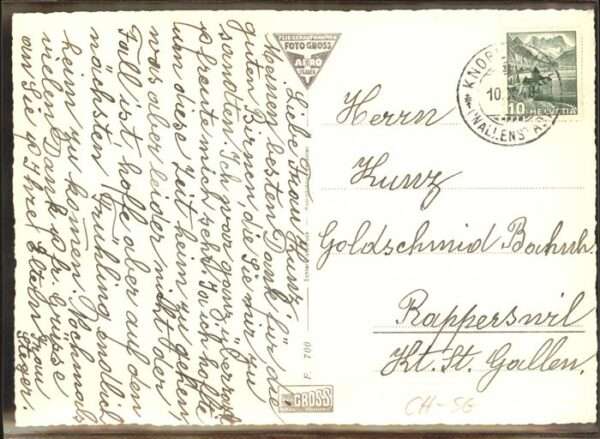 Liebe Frau Kunz.
Meinen besten Dank für die
guten Birnen, die Sie mir zu
sandten. Ich war ganz überrascht
& freute mich sehr. Ja ich hoffte
um diese Zeit heim zu gehen,
was aber leider nicht der
Fall ist, hoffe aber auf den
nächsten Frühling endlich
heim zu kommen. Nochmals
vielen Dank & fr. Grüsse
an Sie & Ihre
Steger.
FLIEGERAUFNAHMEN
FOTO GROSS
AERO
ST. GALLEN
F. 700
GROSS
KNOB
10.
(WALLENSTADT)
10 HELVETIA
Herrn
Kunz
Goldschmid Bahnh.
Rapperswil
Kt. St. Gallen.
CH-SG